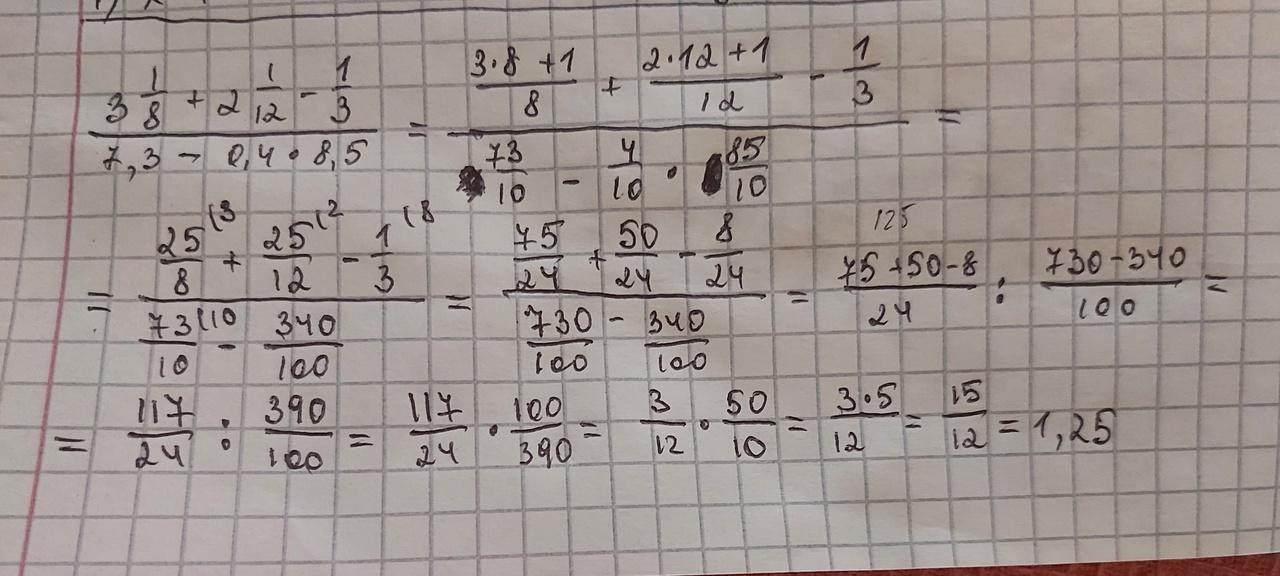 3 1/8 + 2 1/12 - 1/3 / 7,3 - 0,4 · 8,5 = (3·8+1)/8 + (2·12+1)/12 - 1/3 / 73/10 - 4/10 · 85/10 =
= 25/8 (3 + 25/12 (2 - 1/3 (8 / 73/10 (10 - 340/100 = 75/24 + 50/24 - 8/24 / 730/100 - 340/100 = 125 (75+50-8)/24 : (730-340)/100 =
= 117/24 : 390/100 = 117/24 · 100/390 = 3/12 · 50/10 = 3·5/12 = 15/12 = 1,25